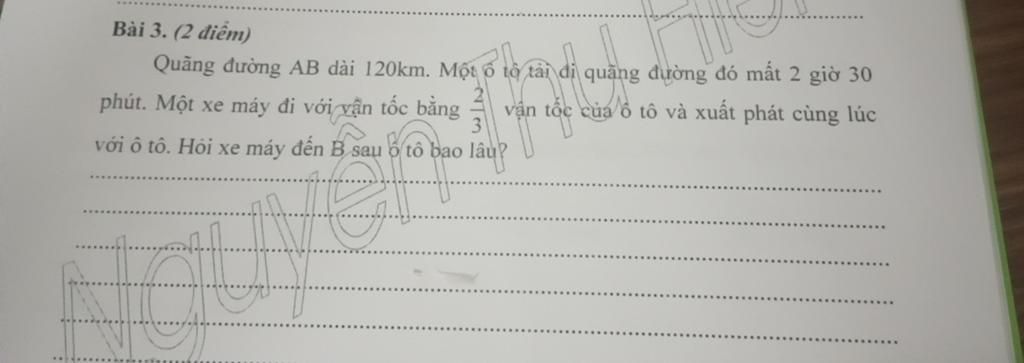 Bài 3. (2 điểm)
Quãng đường AB dài 120km. Một ô tô tải đi quãng đường đó mất 2 giờ 30
phút. Một xe máy đi với vận tốc bằng 2/3 vận tốc của ô tô và xuất phát cùng lúc
với ô tô. Hỏi xe máy đến B sau ô tô bao lâu?
Nguyễn Thu